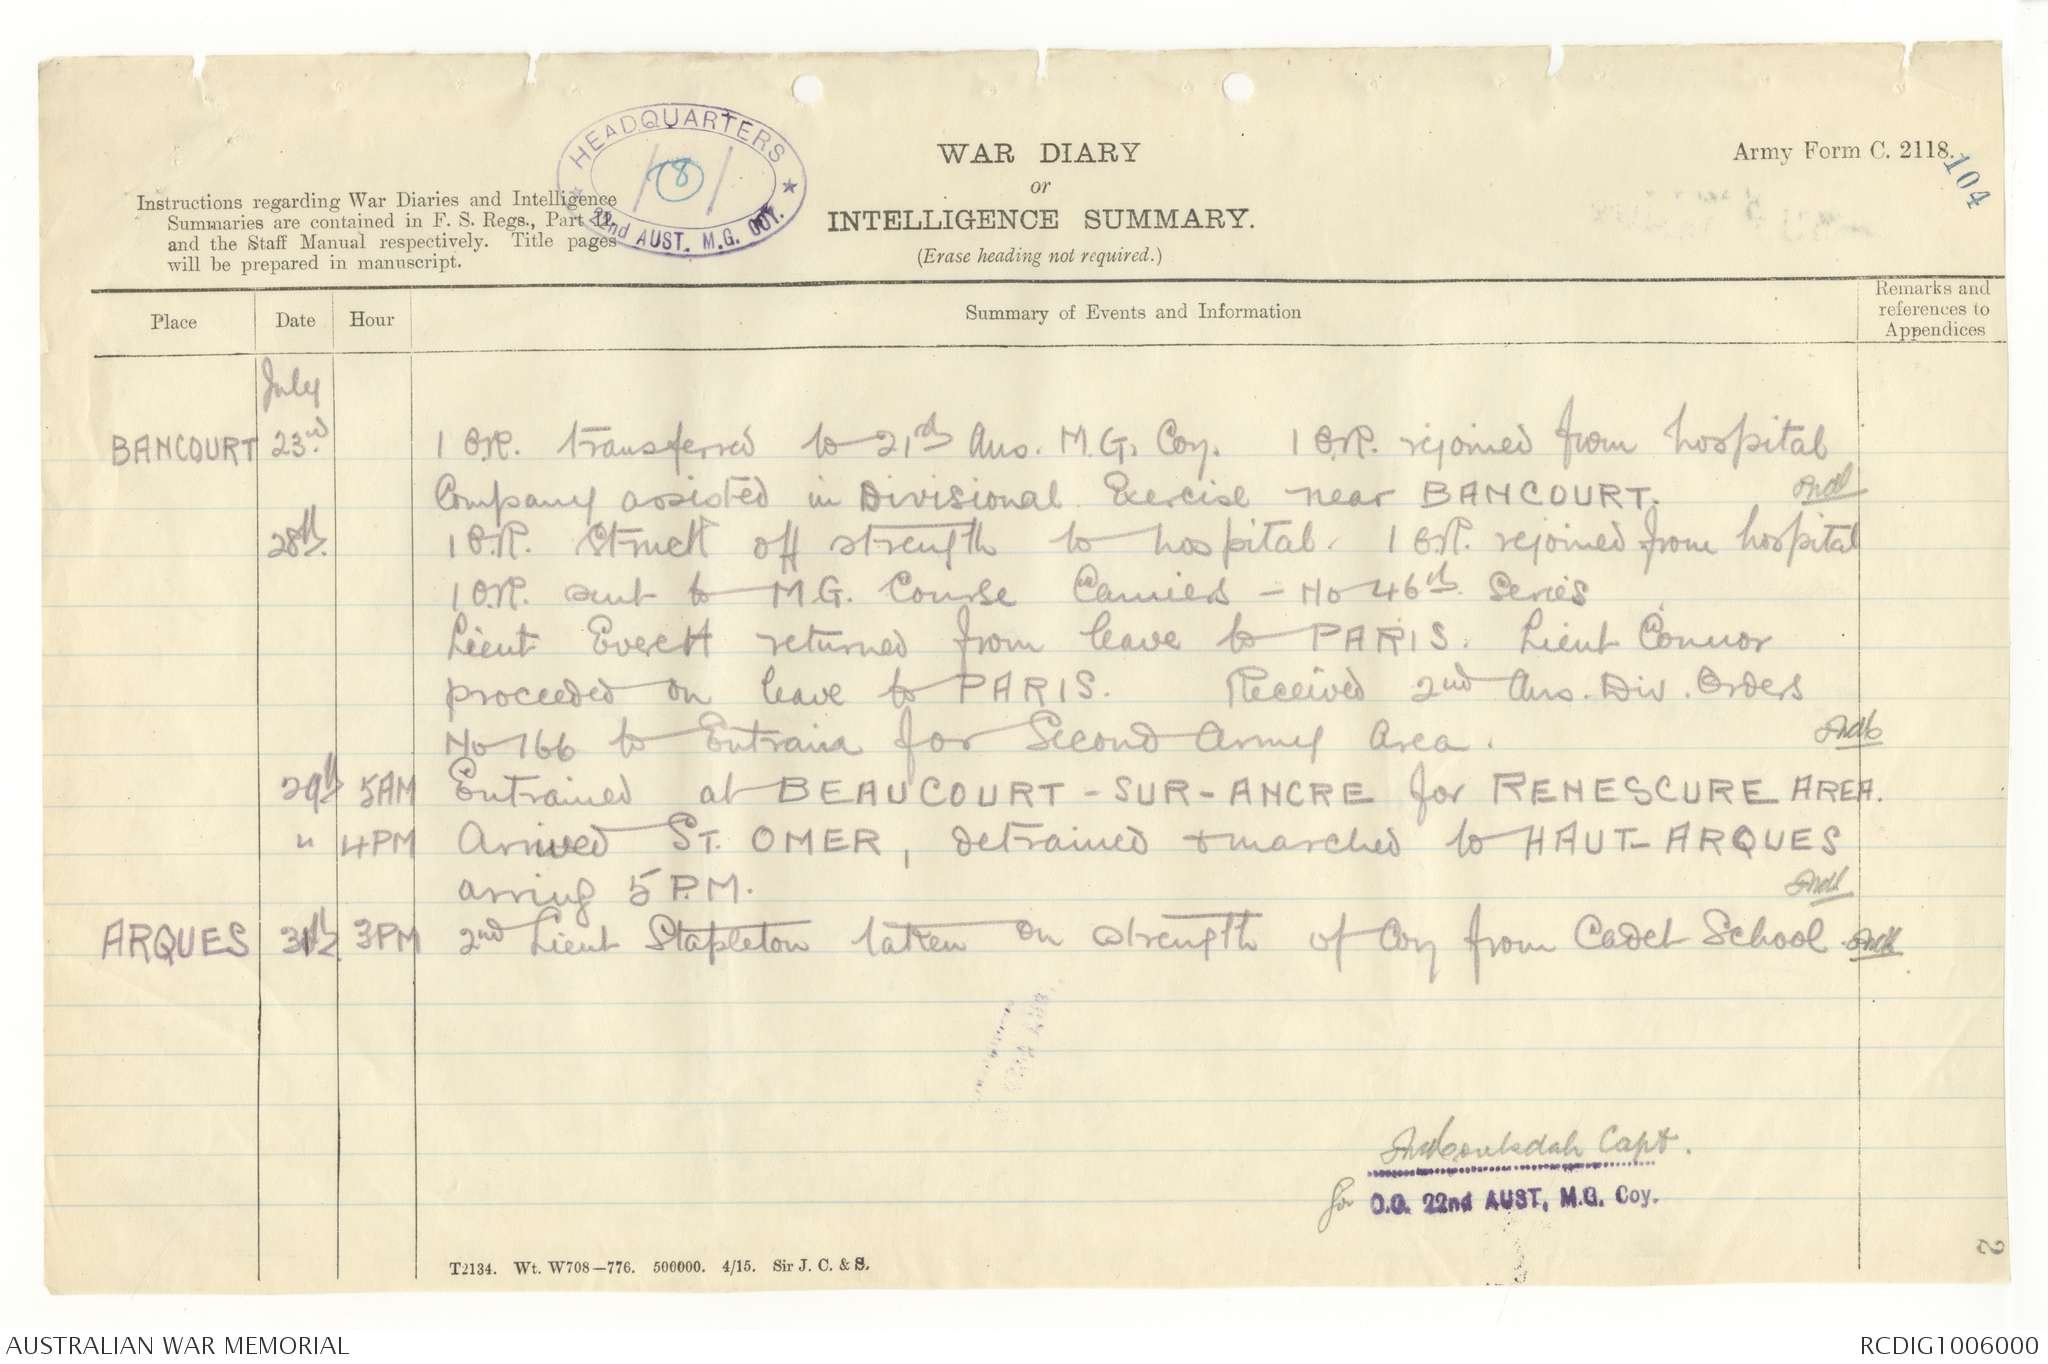 HEADQUARTERS
/ 8 /
22nd AUST. M.G. COY.
WAR DIARY
or
INTELLIGENCE SUMMARY.
(Erase heading not required.)
Army Form C. 2118.
104
Instructions regarding War Diaries and Intelligence
Summaries are contained in F. S. Regs., Part II.
and the Staff Manual respectively. Title pages
will be prepared in manuscript.
Place Date Hour Summary of Events and Information Remarks and references to Appendices
July
BANCOURT 23rd. 1 O.R. transferred to 21st Aus. M.G. Coy. 1 O.R. rejoined from hospital
Company assisted in Divisional Exercise near BANCOURT.
28th. 1 O.R. struck off strength to hospital. 1 O.R. rejoined from hospital
1 O.R. sent to M.G. Course Camiers - No 46th Series
Lieut Everett returned from leave to PARIS. Lieut Connor
proceeded on leave to PARIS. Received 2nd Aus. Div. Orders
No 166 to Entrain for Second Army Area.
29th 5AM Entrained at BEAUCOURT-SUR-ANCRE for RENESCURE AREA.
" 4PM Arrived ST. OMER, detrained & marched to HAUT-ARQUES
arriving 5 P.M.
ARQUES 31st 3PM 2nd Lieut Stapleton taken on strength of Coy from Cadet School
Capt.
for O.C. 22nd AUST. M.G. Coy.
T2134. Wt. W708-776. 500000. 4/15. Sir J. C. & S.
AUSTRALIAN WAR MEMORIAL
RCDIG1006000